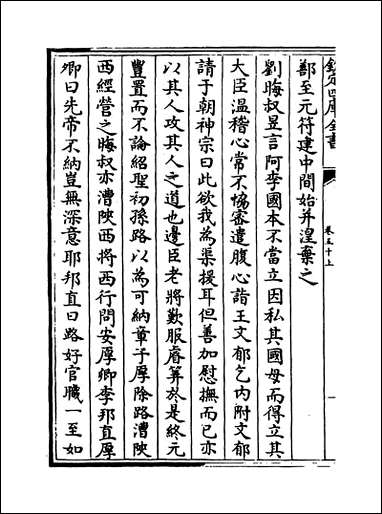 欽定四庫全書
卷五十上
鄯至元符建中間始并湟棄之
劉晦叔昱言阿李國本不當立因私其國母而得立其
大臣温稽心嘗不協密遣腹心詣王文郁乞内附文郁
請于朝神宗曰此欲我為渠援耳但善加慰撫而已亦
以其人攻其人之道也邊臣老將歎服睿算於是終元
豐置而不論紹聖初孫路以為可納章子厚除路漕陜
西經營之晦叔亦漕陜西將西行問安厚卿李邦直厚
卿曰先帝不納豈無深意耶邦直曰路好官職一至如